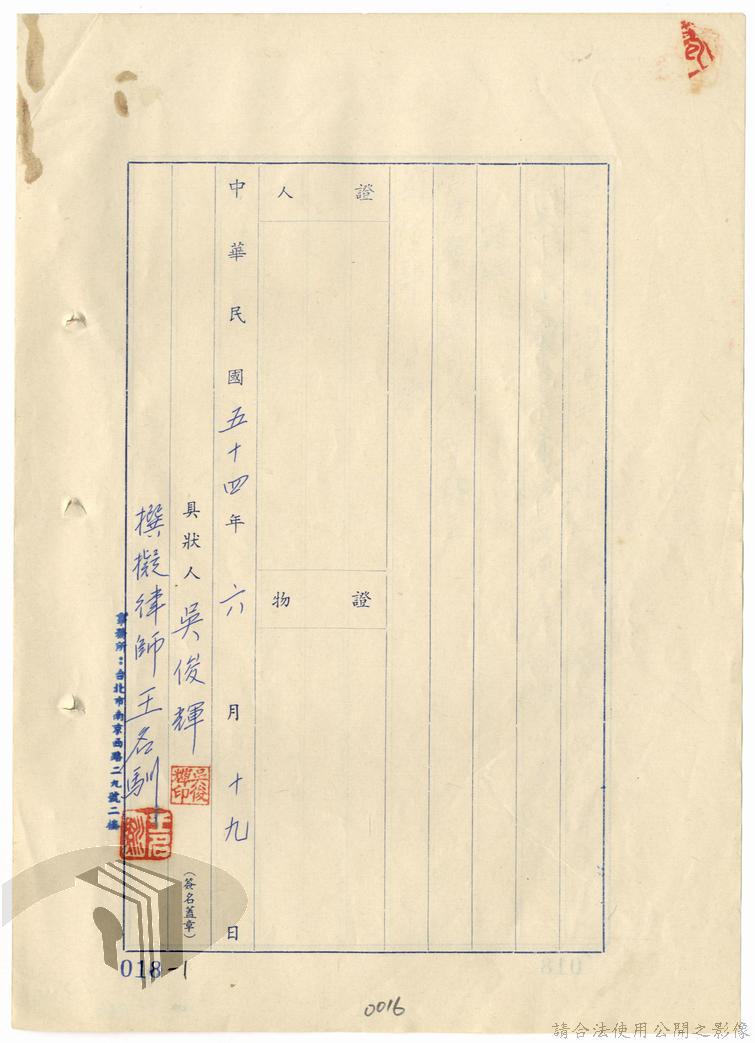 證人
證物
中華民國五十四年六月十九日
具狀人 吳俊輝
吳俊輝印
(簽名蓋章)
撰擬律師王名馴
事務所：台北市南京西路二九號二樓
018-1
018
0016
請合法使用公開之影像